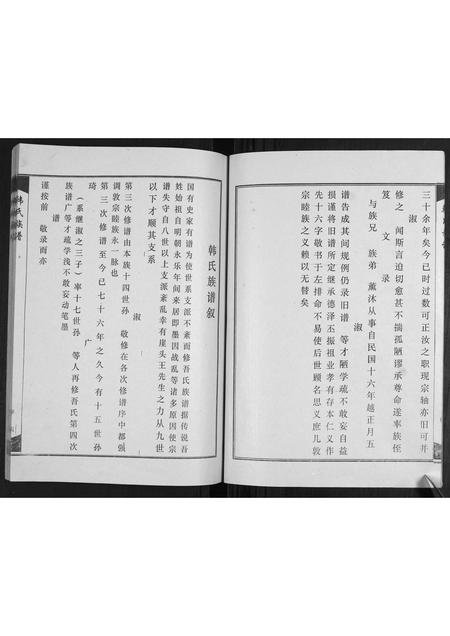 三十余年矣今已时过数可正汝之职现宗轴亦旧可并
淑
修之 闻斯言迫切愈甚不揣孤陋谬承尊命遂率族侄
笈 文 录
与族兄 族弟 薰沐从事自民国十六年越正月五
淑
谱告成其间规例仍录旧谱 等才陋学疏不敢妄自益
损谨将旧谱所定继承德泽丕振祖业孝有存本仁义作
先十六字敬书于左排命不易使后世顾名思义庶几敦
宗睦族之义赖以无替矣
韩氏族谱叙
国有史家有谱为使世系支派不紊而修吾氏族谱据传说吾
姓始祖自明朝永乐年间来居即墨因战乱等诸多原因使宗
谱失守自八世以上支派紊乱幸有崖头王先生之力从九世
以下才顺其支系
淑
第三次修谱由本族十四世孙 敬修在各次修谱序中都强
调敦宗睦族永一脉也
琦
第三次修谱至今已七十六年之久今有十五世孙
广
（系继淑之三子）率十七世孙 等人再修吾氏第四次
族谱广等才疏学浅不敢妄动笔墨
谱
谨按前 敬录而亦
韩氏族谱